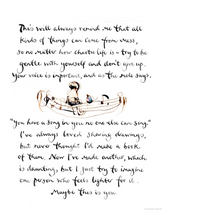 This will always remind me that all
kinds of things can come from mess,
so no matter how chaotic life is – try to be
gentle with yourself and don't give up.
Your voice is important, and as the mole says,
"You have a song in you no one else can sing."
I've always loved sharing drawings,
but never thought I'd make a book
of them. Now I've made another, which
is daunting, but I just try to imagine
one person who feels lighter for it..
Maybe this is you